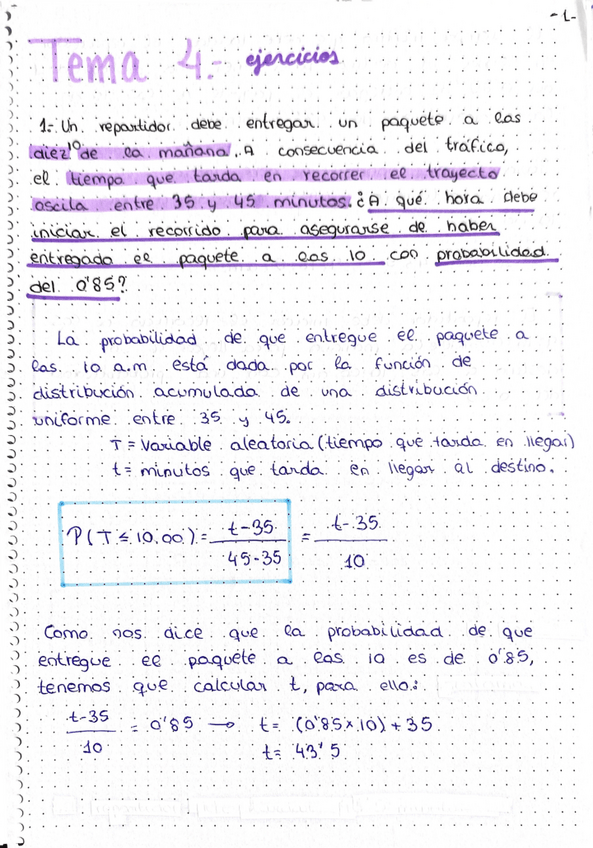 - 1 -
Tema 4.- ejercicios
1.- Un repartidor debe entregar un paquete a las
diez 10 de la mañana. A consecuencia del tráfico,
el tiempo que tarda en recorrer el trayecto
oscila entre 35 y 45 minutos. ¿A qué hora debe
iniciar el recorrido para asegurarse de haber
entregado el paquete a las 10 con probabilidad
del 0'85?
La probabilidad de que entregue el paquete a
las 10 a.m. está dada por la función de
distribución acumulada de una distribución
uniforme entre 35 y 45.
T = Variable aleatoria (tiempo que tarda en llegar)
t = minutos que tarda en llegar al destino.
P(T ≤ 10.00) = t-35 / 45-35 = t-35 / 10
Como nos dice que la probabilidad de que
entregue el paquete a las 10 es de 0'85,
tenemos que calcular t, para ello:
t-35 / 10 = 0'85 → t = (0'85 × 10) + 35
t = 43'5